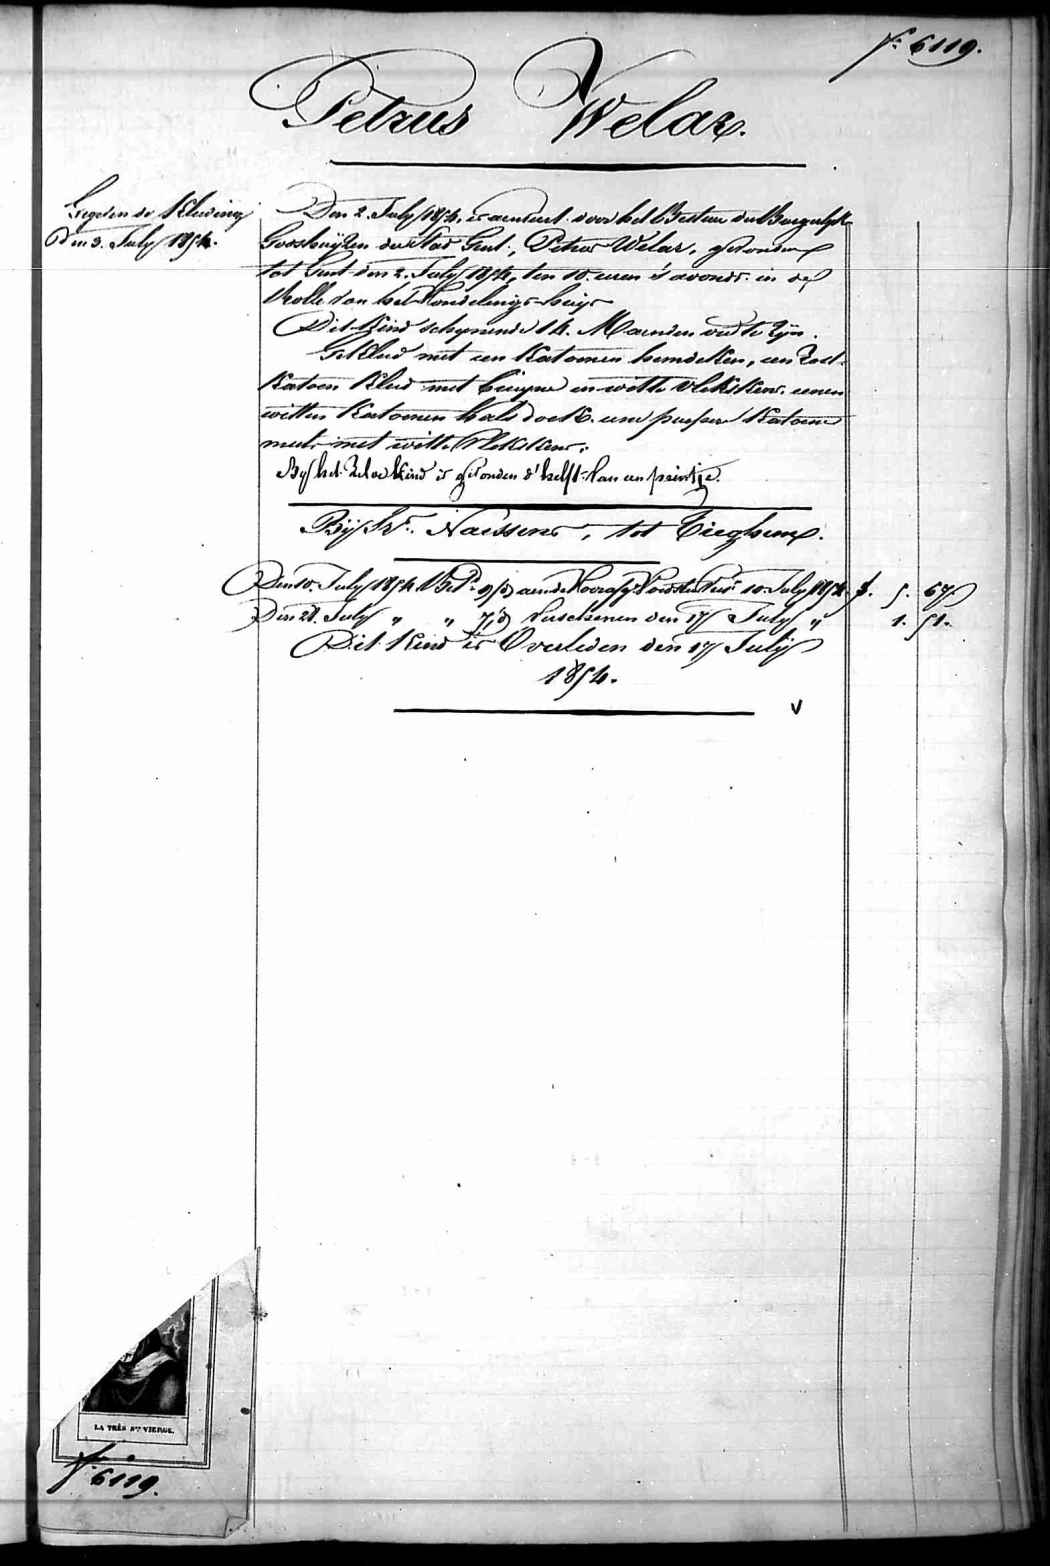 N.º 6119.
Petrus Welaz.
Gegeven de Kleeding
den 3. July 1854.
Den 2. July 1854, is aenveert door het Bestuer der Burgelyke
Godshuyzen der Stad Gent, Petrus Welaz, gevonden
tot Gent den 2. July 1854, ten 10. uren 's avonds in de
Rolle van het Vondelings-huys
Dit Kind schynende 14. Maenden oud te zyn.
Gekleed met een Katoenen hemdeken, een Rood
Katoen Kleed met bruyne en witte vlekskens, eenen
witten Katoenen hals doek, eene purper Katoene
muts met witte vlekskens.
By het zelve kind is gevonden d' helft van een prentje.
By Fr. Naessens, tot Tieghem.
Den 10. July 1854 July 10. July 1854 f. 5. 67
Den 21. July " " Verschenen den 17 July " 1. 51.
Dit Kind is Overleden den 17 July
1854.
V
LA TRÈS Ste VIERGE.
N.º 6119.